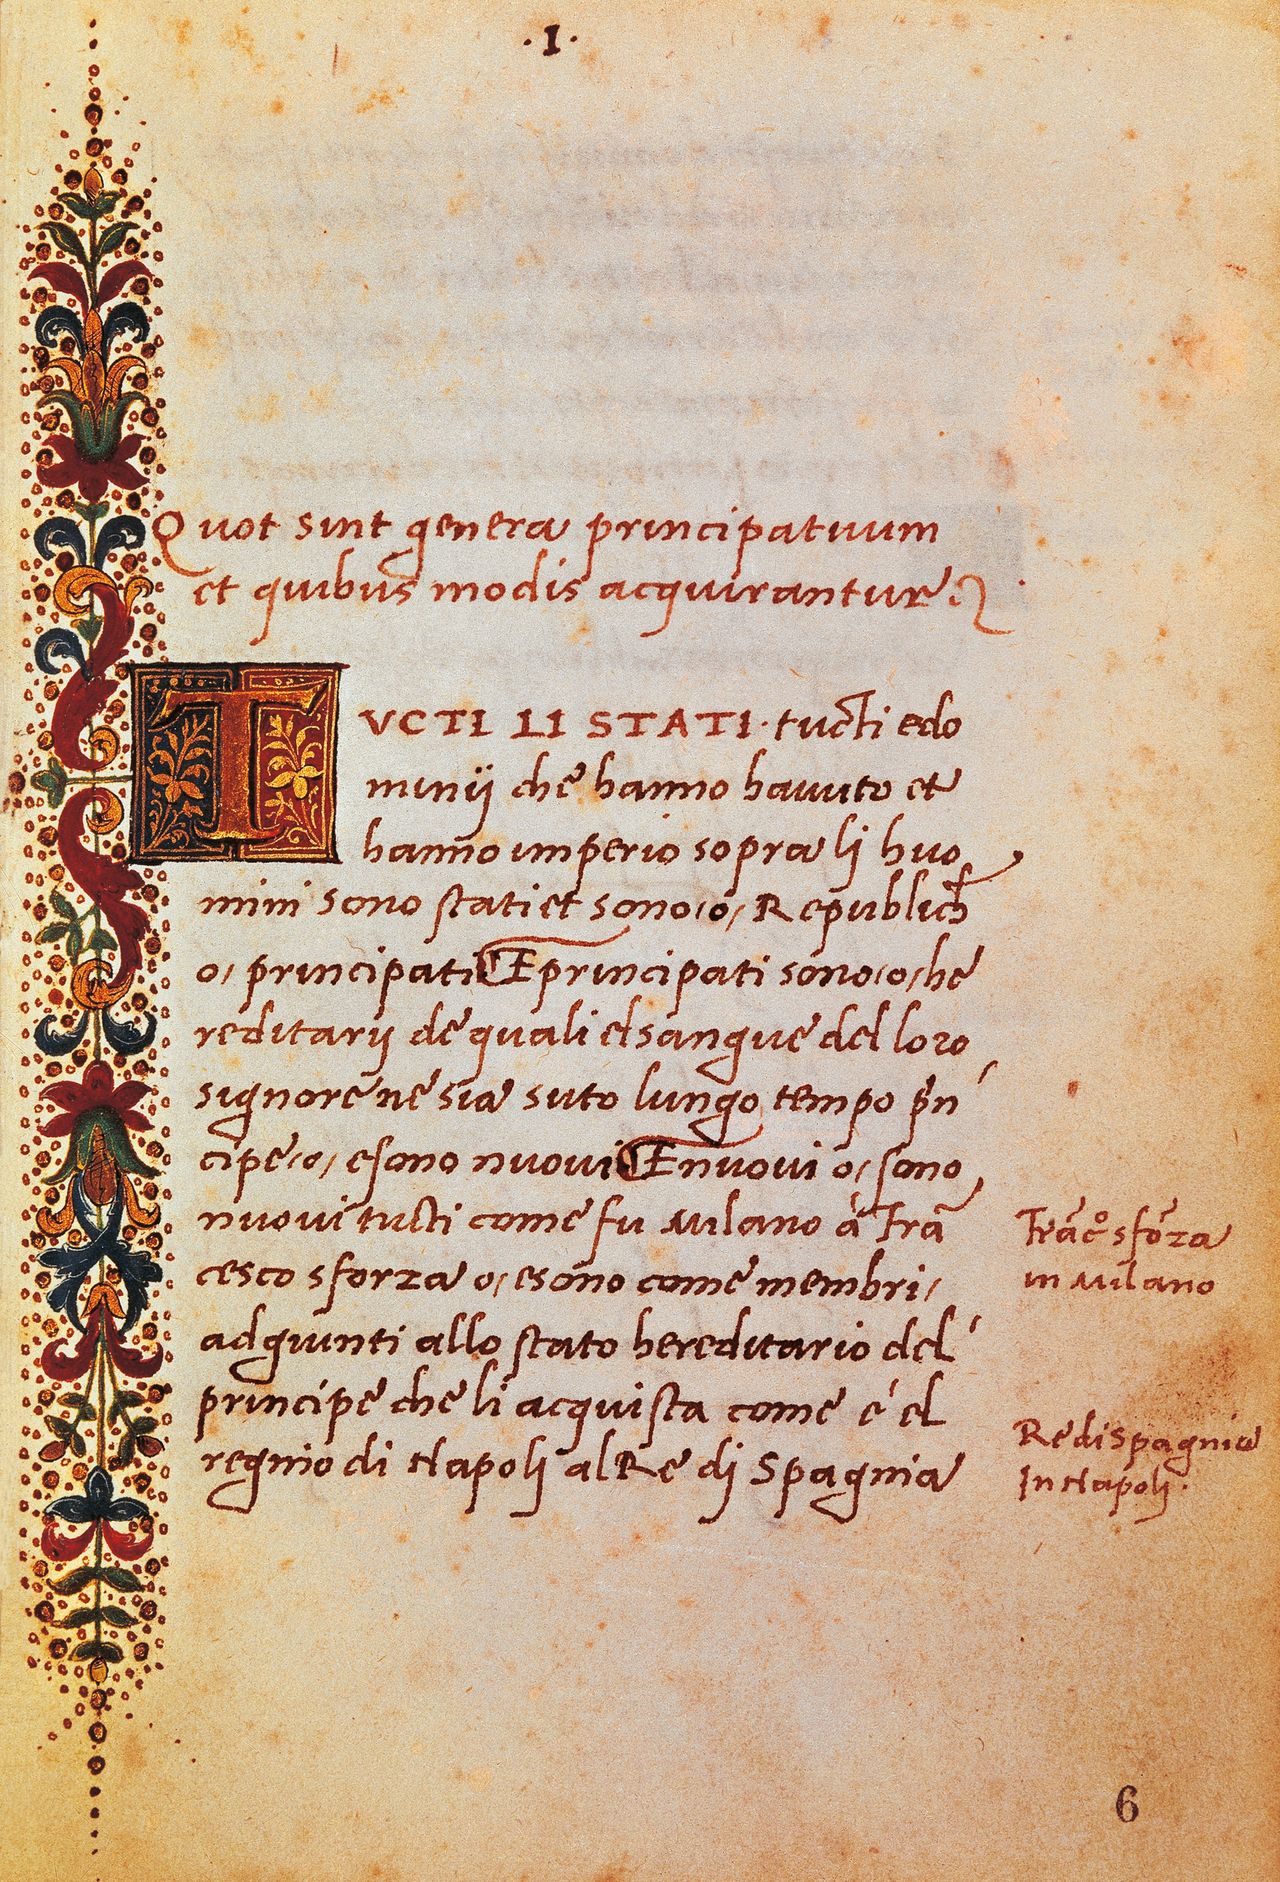 ·I·
Quot sint genera principatuum
et quibus modis acquirantur
TVCTI LI STATI· tucti edo
minij che hanno havuto et
hanno imperio sopra lj huo
mini sono stati et sono /o/ Republich
o/ principati E principati sono /o/ he
reditarij de quali el sangue del loro
signore ne sia suto lungo tempo prīn
cipe /o/ e sono nuovi E nuovi o/ sono
nuovi tucti come fu Milano à Frā
cesco sforza o/ e sono come membri/
adgiunti allo stato hereditario del
principe che li acquista come é el
regnio di Napolj al Re dj Spagnia
Frāc° sforza
in Milano
Re di Spagnia
In Napolj·
6